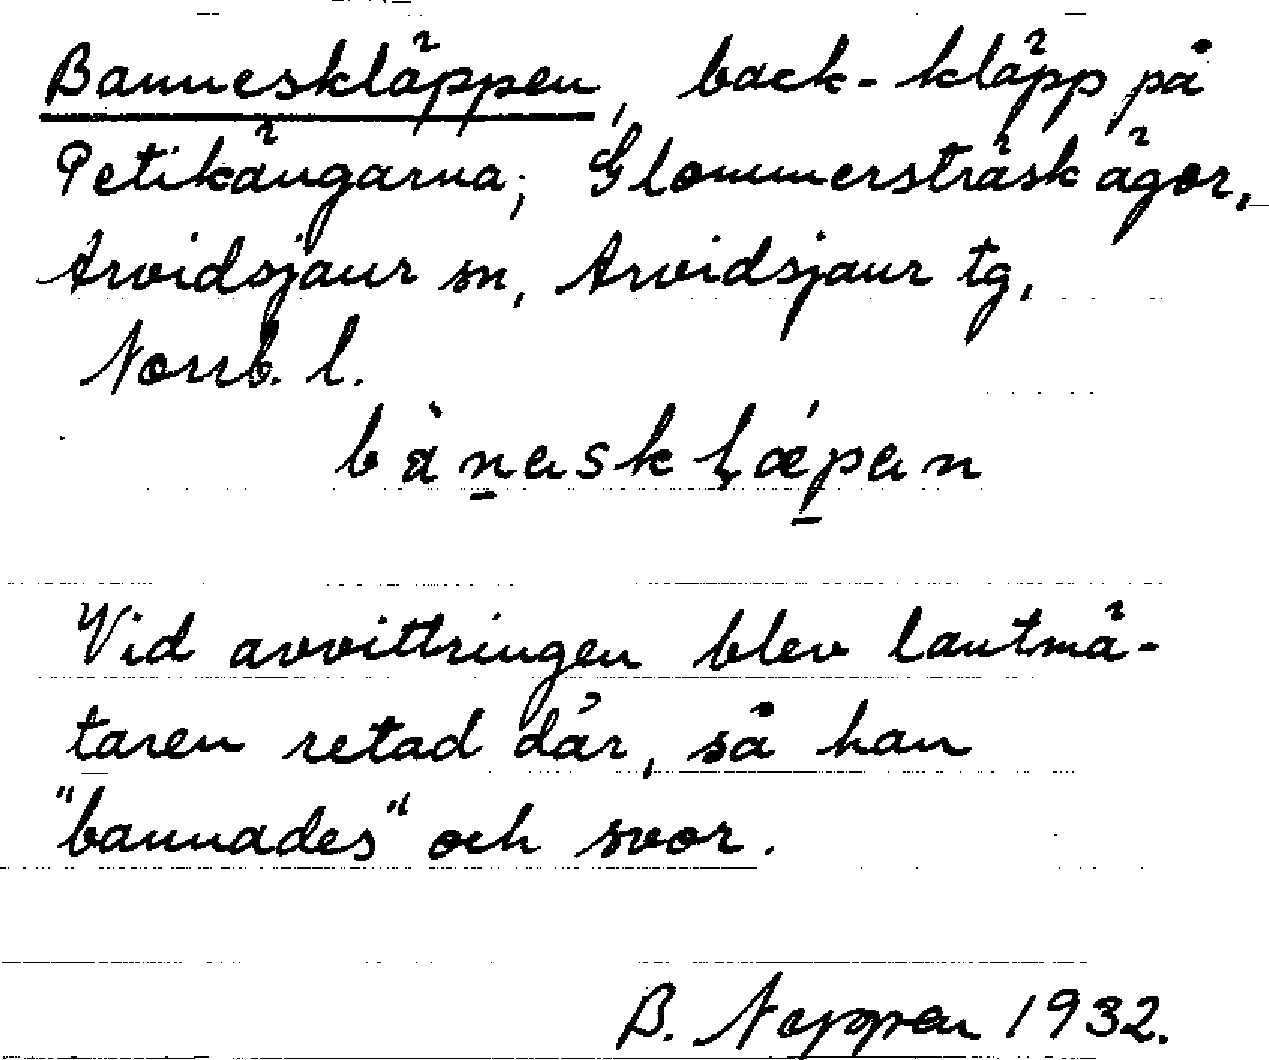 Banneskläppen, back-kläpp på
Petikängarna, Glommersträsk ägor,
Arvidsjaur sn, Arvidsjaur tg,
Norrb. l.
Vid avvittringen blev lantmä-
taren retad där, så han
"bannades" och svor.
B. Neppen 1932.